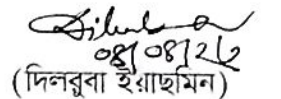 08/08/26
(দিলরুবা ইয়াছমিন)